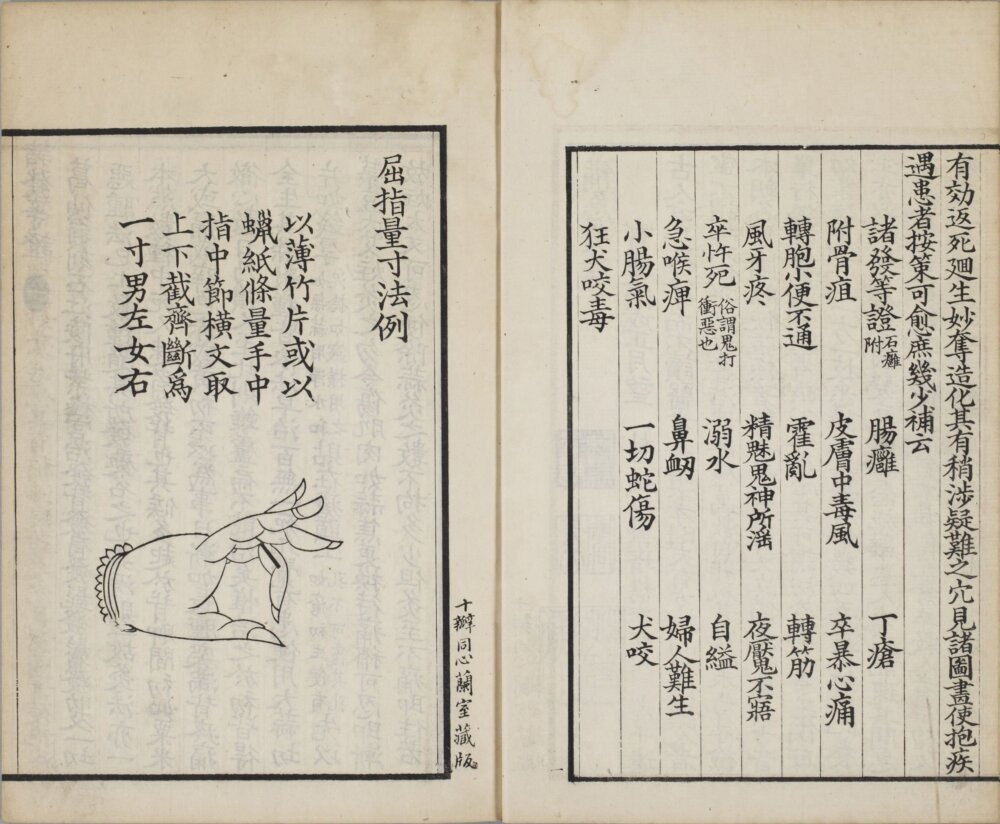 有効返死廻生妙奪造化其有稍涉疑難之穴見諸圖畫使抱疾
遇患者按策可愈庶幾少補云
諸發等證石癰附 腸癰 丁瘡
附骨疽 皮膚中毒風 卒暴心痛
轉胞小便不通 霍亂 轉筋
風牙疼 精魅鬼神所滛 夜魘不寤
卒忤死俗謂鬼打衝惡也 溺水 自縊
急喉痺 鼻衂 婦人難生
小腸氣 一切蛇傷 犬咬
狂犬咬毒
屈指量寸法例
以薄竹片或以
蠟紙條量手中
指中節橫文取
上下截齊斷爲
一寸男左女右
十瓣同心蘭室藏版